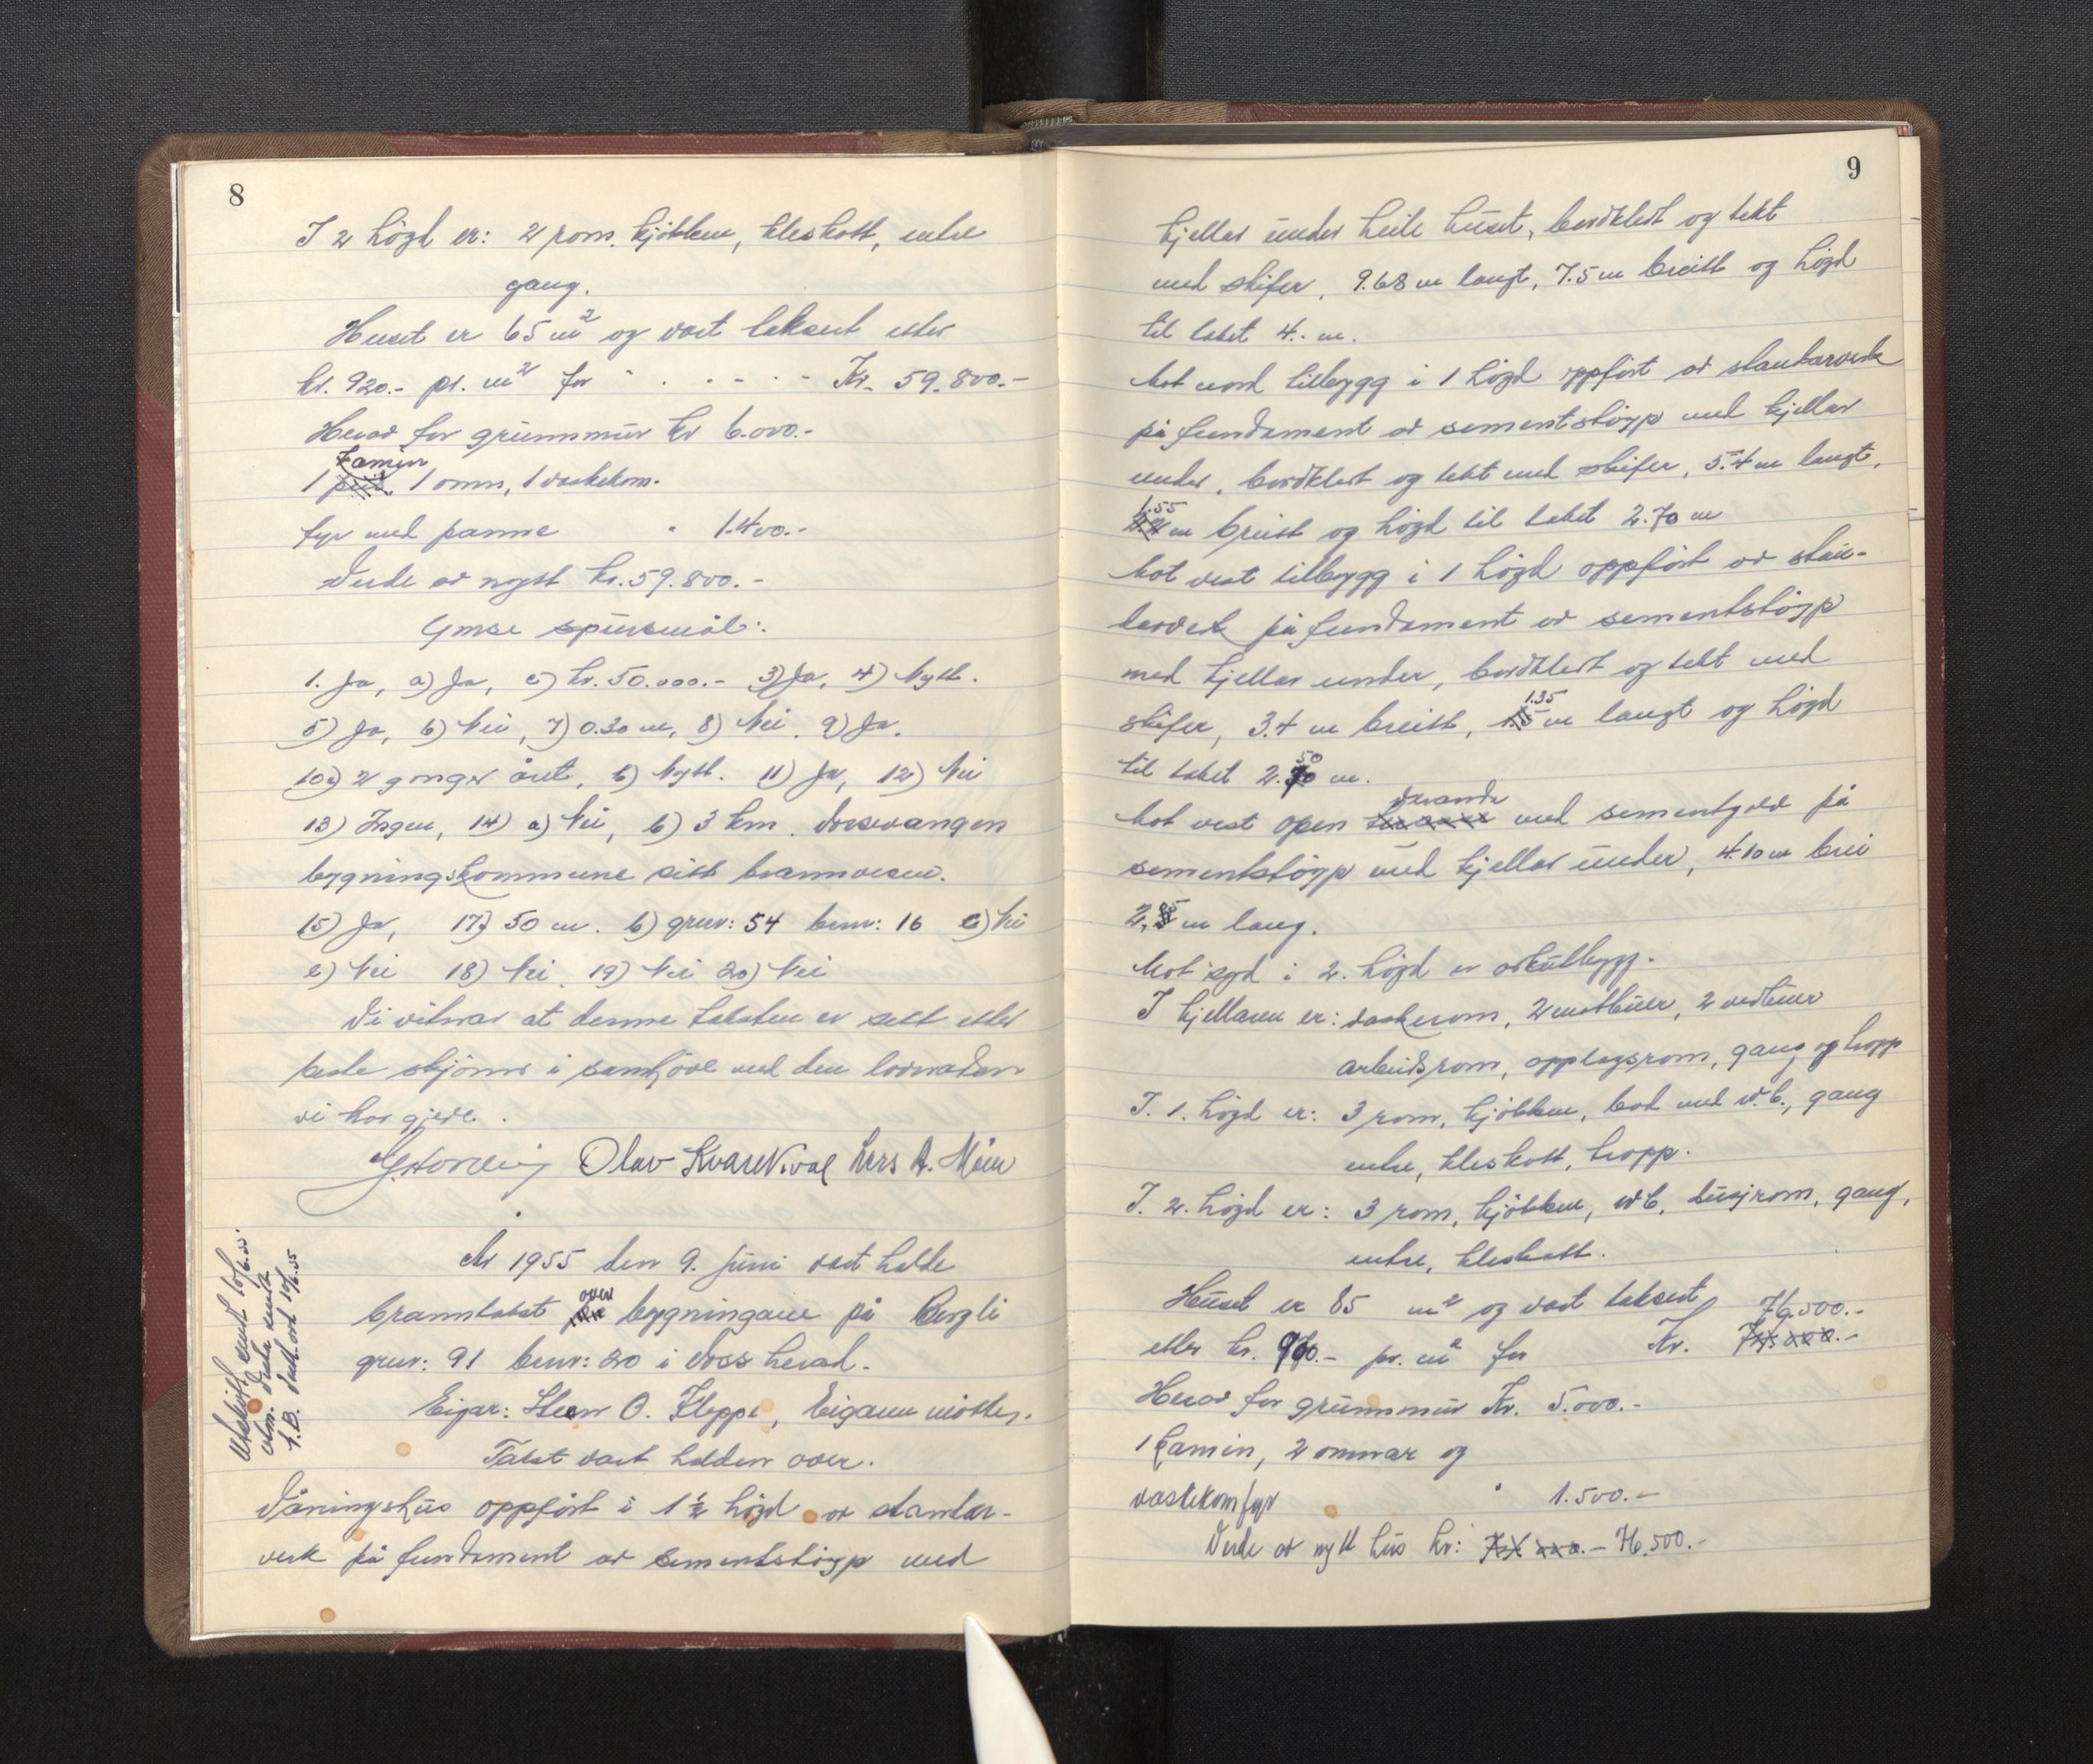 8
I 2 høgd er: 2 rom, kjøkken, kleskott, entre
gang.
Huset er 65 m² og vart taksert etter
kr. 920.- pr. m² for " . . - . - Kr. 59.800.-
Herav for grunnmur kr 6.000.-
Kamin
1 1 omn, 1 vaskekom-
fyr med panne " 1.400.-
Verde av nytt kr. 59.800.-
Ymse spursmål:
1. Ja, a) Ja, c) kr. 50.000.- 3) Ja, 4) Nytt.
5) Ja, 6) Nei, 7) 0.30 m, 8) Nei, 9) Ja.
10a) 2 gonger året, b) Nytt. 11) Ja, 12) Nei
13) Ingen, 14) a) Nei, b) 3 km. Vossevangen
bygningskommune sitt brannvesen.
15) Ja, 17) 50 m. b) grnr: 54 bnr: 16 c) Nei
e) Nei 18) Nei, 19) Nei 20) Nei
Vi vitnar at denne taksten er sett etter
beste skjønn i samhøve med den lovnaden
vi har gjeve.
Olav Kvarekval Lars A. Møen
År 1955 den 9. juni vart halde
over
branntakst bygningane på Bergli
grnr: 91 bnr: 20 i Voss herad.
Eigar: Steen O. Kleppe, Eigaren møtter.
Takst vart halden over.
Våningshus oppført i 1½ høgd av stender-
verk på fundament av sementstøyp med
Utskrift sendt 10/6.55.
9
kjellar under heile huset, bordkledt og tekt
med skifer, 9.68 m langt, 7.5 m breitt og høgd
til taket 4.- m.
Mot nord tilbygg i 1 høgd oppført av stenderverk
på fundament av sementstøyp med kjellar
under, bordkledt og tekt med skifer, 5.4 m langt,
1.55
m breitt og høgd til taket 2.70 m
Mot vest tilbygg i 1 høgd oppført av sten-
derverk på fundament av sementstøyp
med kjellar under, bordkledt og tekt med
1.35
skifer, 3.4 m breitt, m langt og høgd
50
til taket 2. m.
veranda
Mot vest open med sementgolv på
sementstøyp med kjellar under, 4.10 m brei
m lang.
Mot syd i 2. høgd er arkutbygg.
I kjellaren er: vaskerom, 2 matbuer, 2 vedbuer
arbeidsrom, opplagsrom, gang og tropp
I. 1. høgd er: 3 rom, kjøkken, bad med w.c., gang
entre, kleskott, tropp.
I. 2. høgd er: 3 rom, kjøkken, wc, dusjrom, gang,
entre, kleskott.
Huset er 85 m² og vart taksert
76.500.-
etter kr. 900.- pr. m² for Kr.
Herav for grunnmur Kr. 5.000.-
1 kamin, 2 omnar og
vaskekomfyr " 1.500.-
Verde av nytt hus kr: 76.500.-